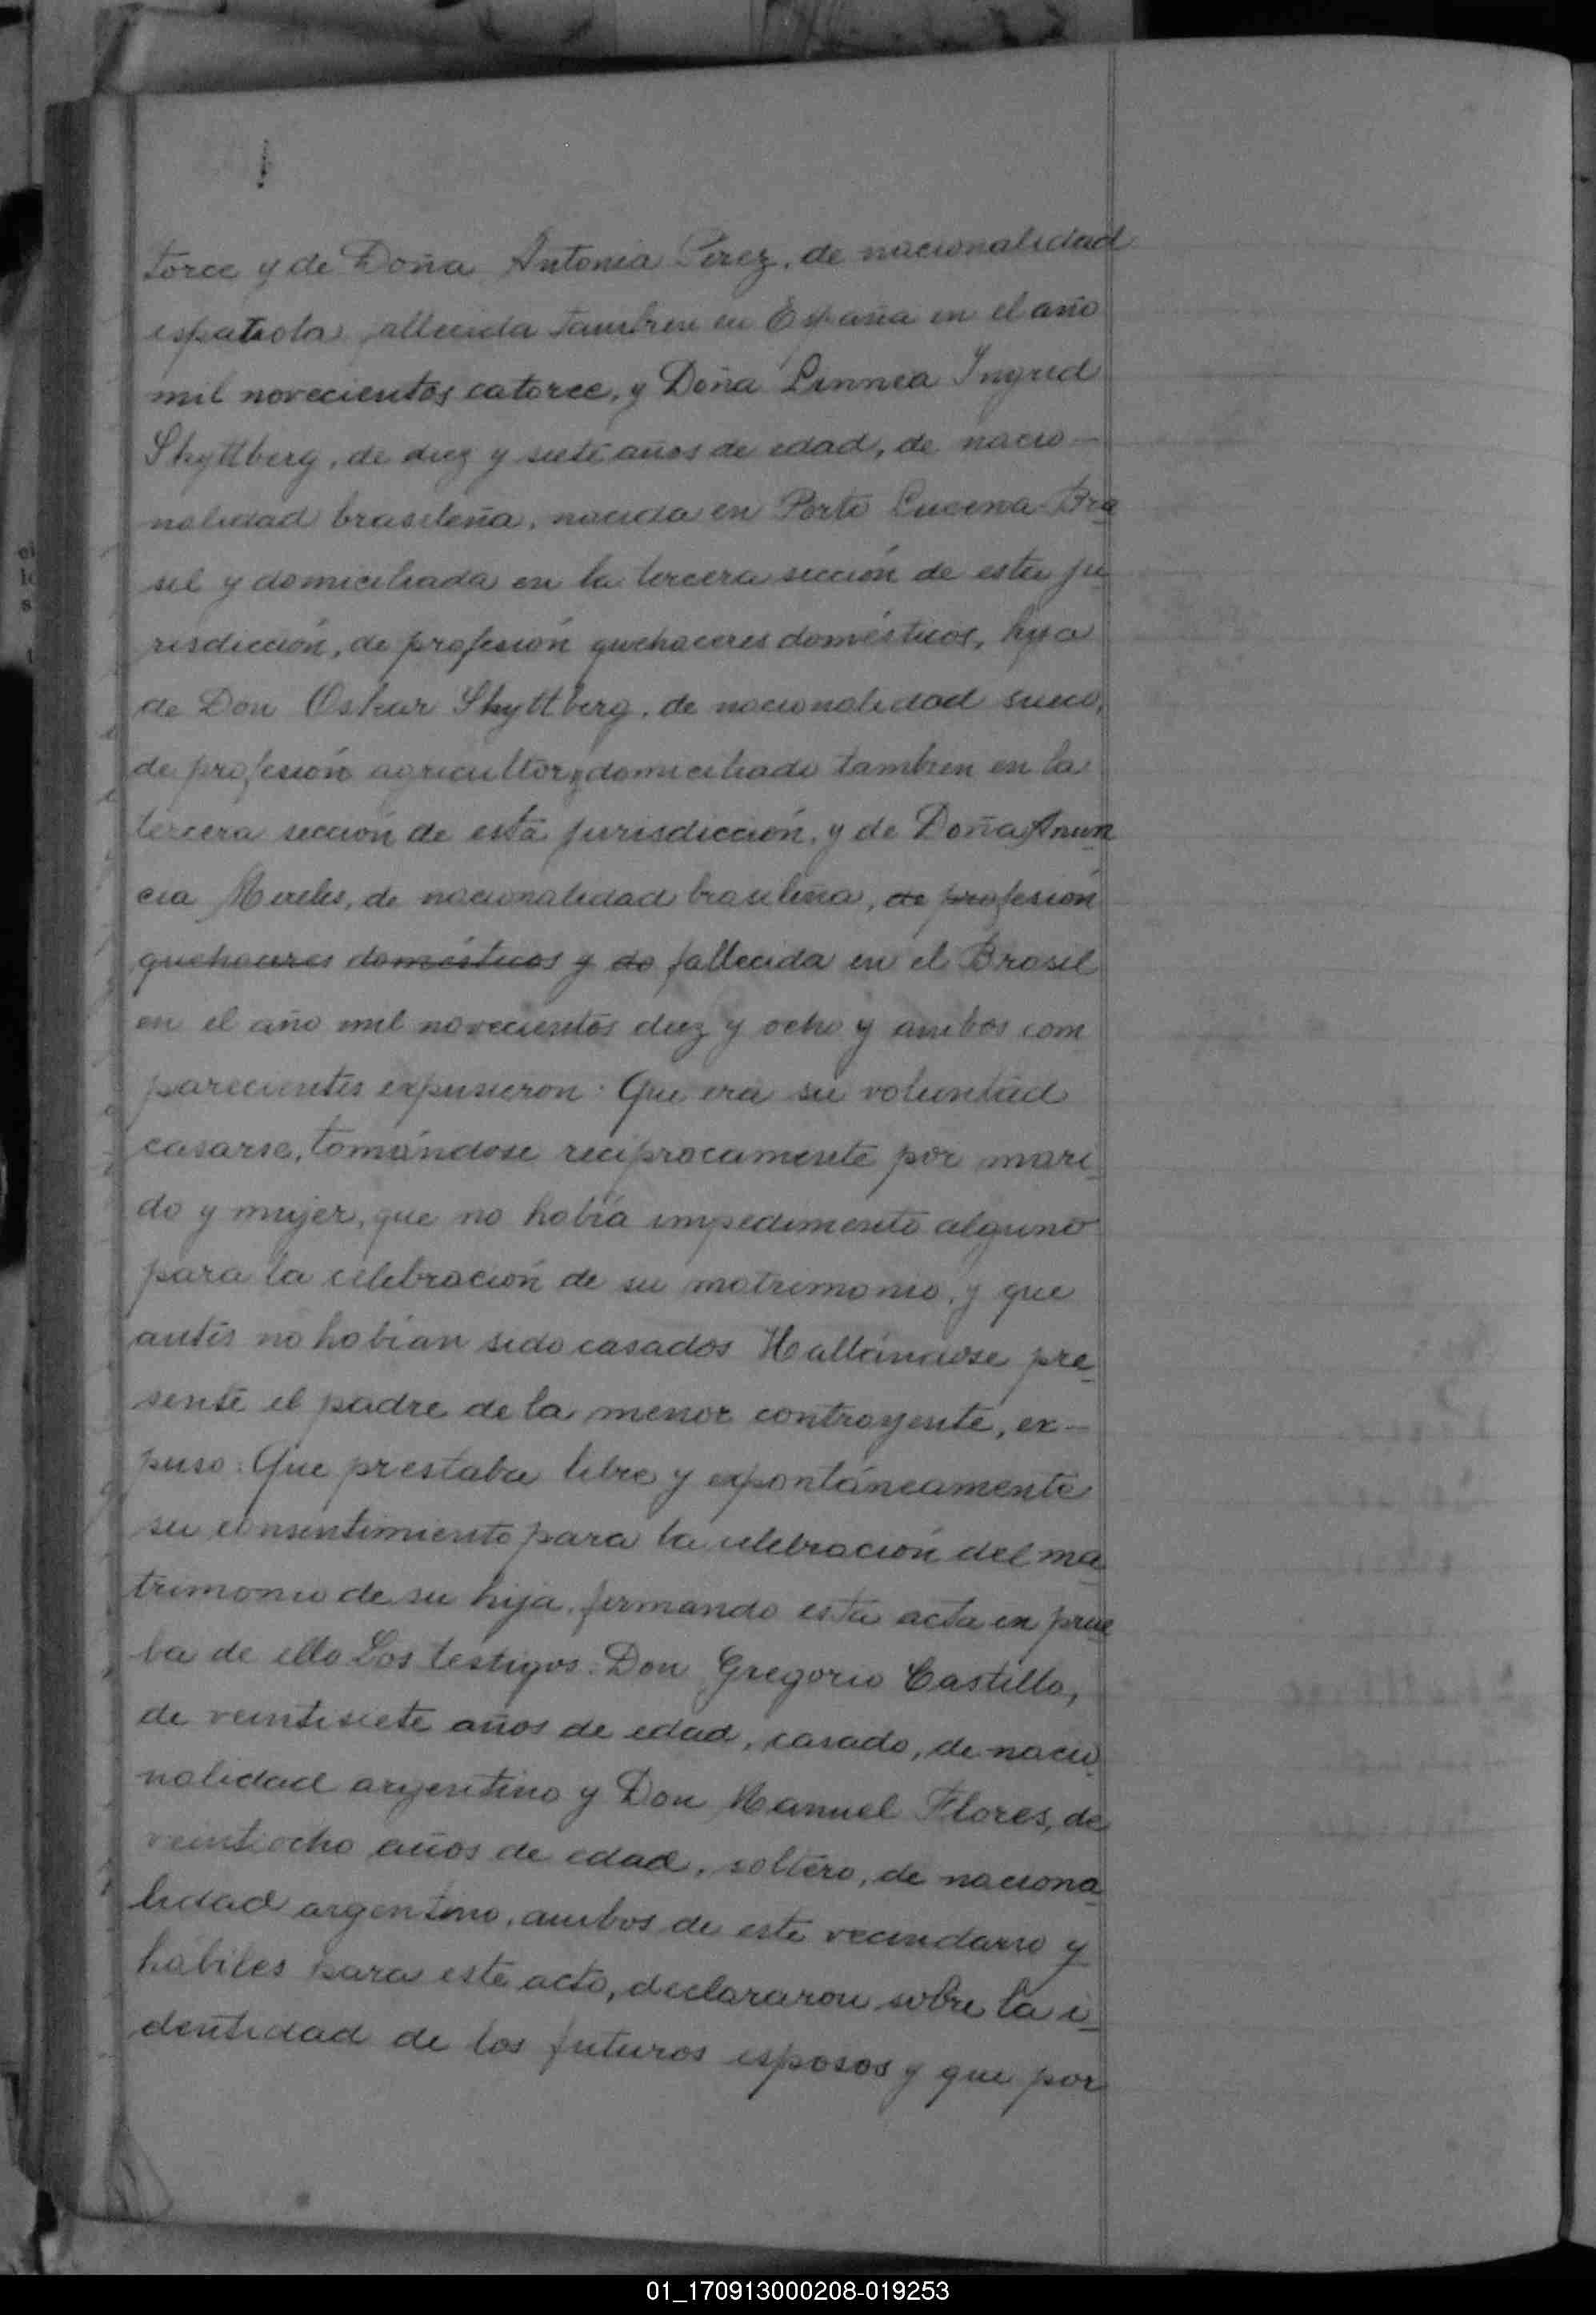 torce y de Doña Antonia Pérez, de nacionalidad
española fallecida tambien en España en el año
mil novecientos catorce, y Doña Linnea Ingrid
Skyttberg, de diez y siete años de edad, de nacio-
nalidad brasileña, nacida en Porto Lucena Bra
sil y domiciliada en la tercera sección de esta ju
risdicción, de profesión quehaceres domésticos, hija
de Don Oskar Skyttberg, de nacionalidad sueco,
de profesión agricultor y domiciliado tambien en la
tercera sección de esta jurisdicción, y de Doña Anun
cia Meireles, de nacionalidad brasileña, de profesión
quehaceres domésticos y do fallecida en el Brasil
en el año mil novecientos diez y ocho y ambos com
parecientes expusieron: Que era su voluntad
casarse, tomándose recíprocamente por mari
do y mujer, que no había impedimento alguno
para la celebración de su matrimonio, y que
antes no habían sido casados Hallándose pre
sente el padre de la menor contrayente, ex-
puso: Que prestaba libre y expontáneamente
su consentimiento para la celebración del ma
trimonio de su hija, firmando esta acta en prue
ba de ello Los testigos: Don Gregorio Castillo,
de veintisiete años de edad, casado, de nacio
nalidad argentino y Don Manuel Flores, de
veintiocho años de edad, soltero, de naciona
lidad argentino, ambos de este vecindario y
hábiles para este acto, declararon sobre la i
dentidad de los futuros esposos y que por
01_170913000208-019253